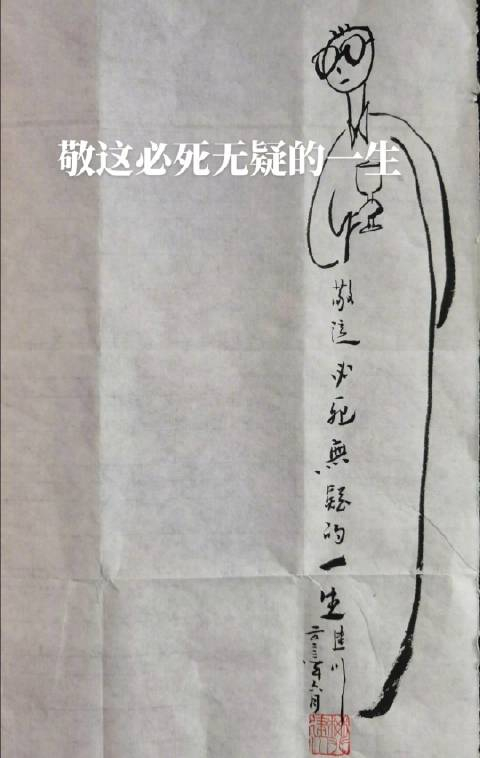 敬这必死无疑的一生
敬這必死無疑的一生
建川
二〇二三年六月